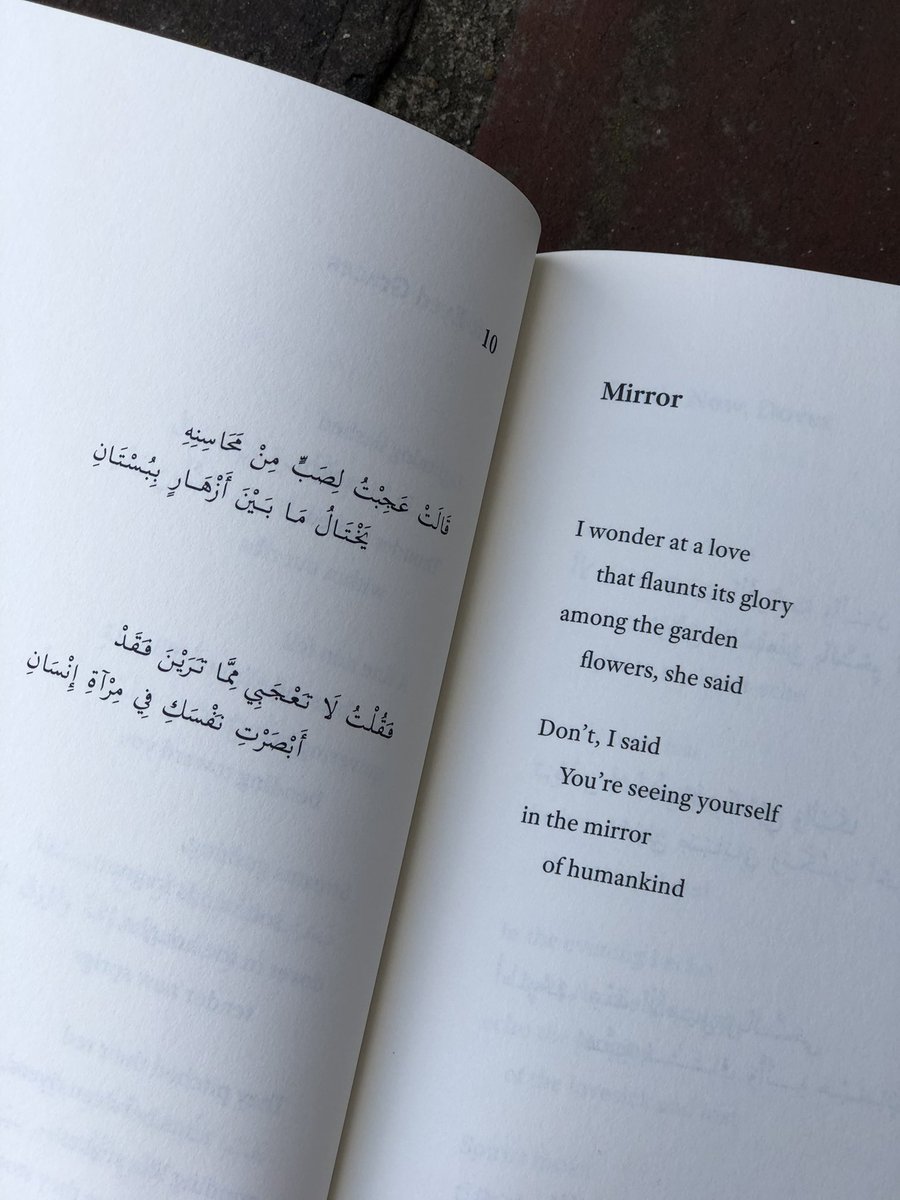 10
قَالَتْ عَجِبْتُ لِصَبٍّ مِنْ مَحَاسِنِهِ
يَخْتَالُ مَا بَيْنَ أَزْهَارٍ بِبُسْتَانِ
فَقُلْتُ لَا تَعْجَبِي مِمَّا تَرَيْنَ فَقَدْ
أَبْصَرْتِ نَفْسَكِ فِي مِرْآةِ إِنْسَانِ
Mirror
I wonder at a love
that flaunts its glory
among the garden
flowers, she said
Don’t, I said
You’re seeing yourself
in the mirror
of humankind